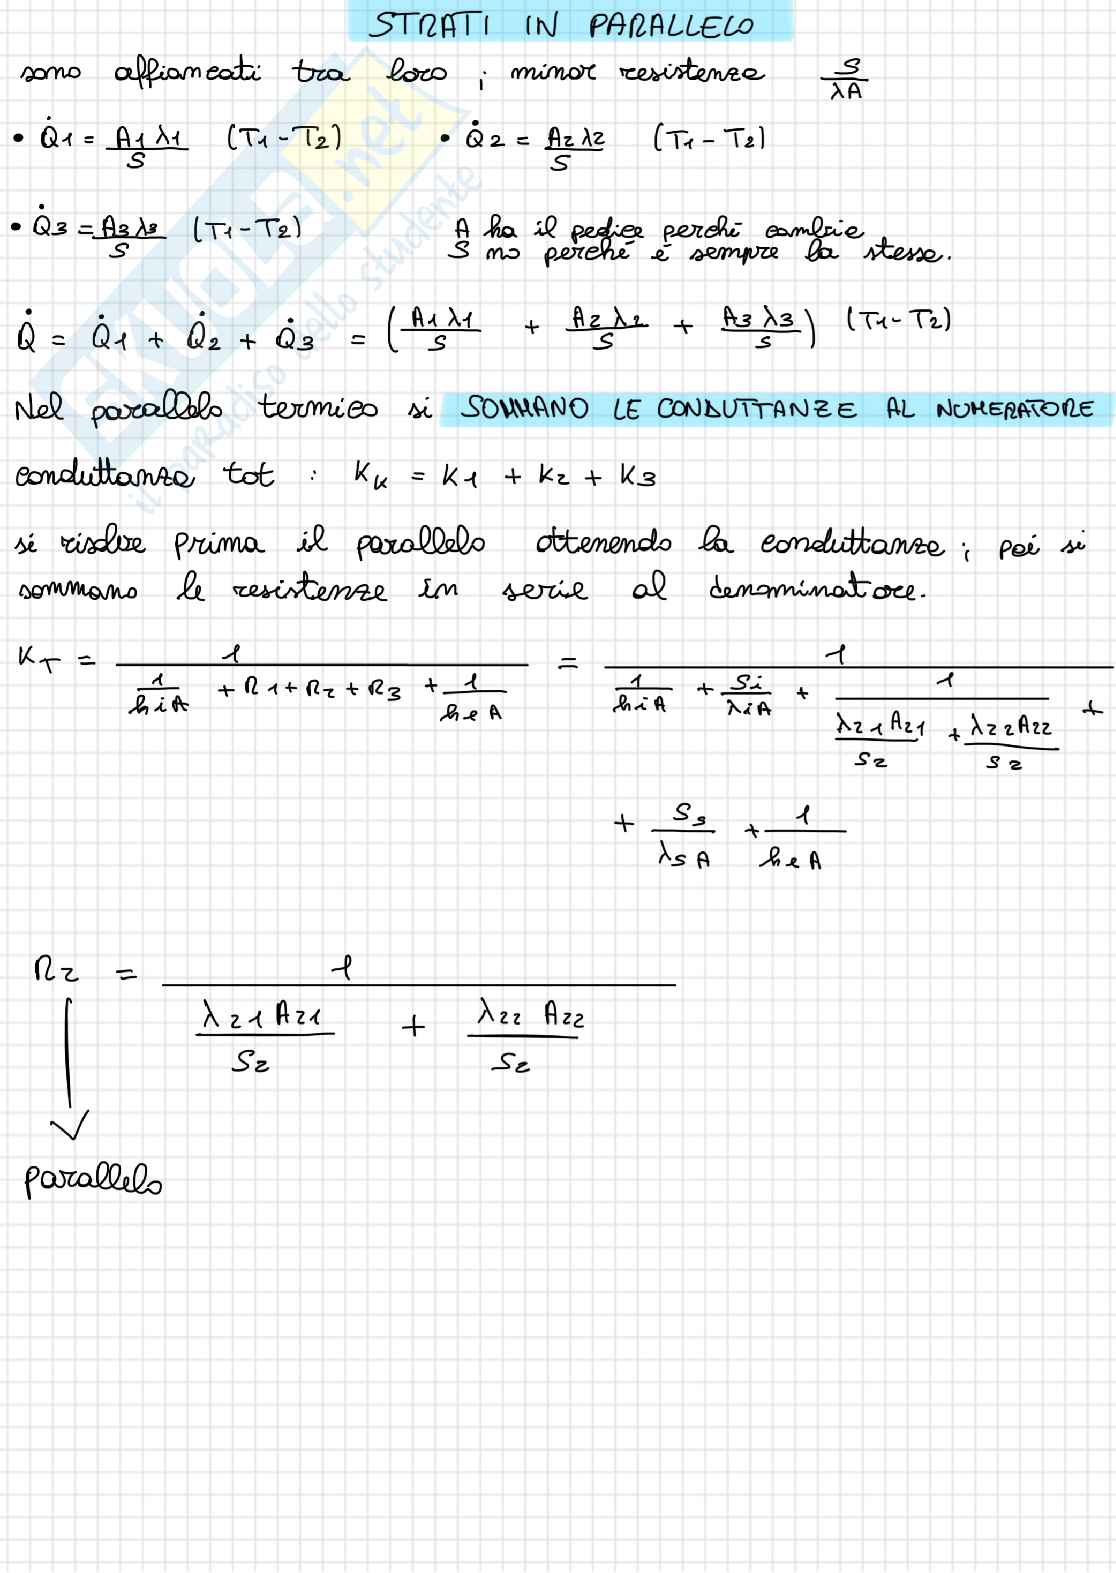 STRATI IN PARALLELO
sono affiancati tra loro ; minor resistenza S/λA
• Q̇1 = A1 λ1/S (T1 - T2) • Q̇2 = A2 λ2/S (T1 - T2)
• Q̇3 = A3 λ3/S (T1 - T2) A ha il pedice perché cambia
S no perché è sempre la stessa.
Q̇ = Q̇1 + Q̇2 + Q̇3 = (A1 λ1/S + A2 λ2/S + A3 λ3/S) (T1 - T2)
Nel parallelo termico si SOMMANO LE CONDUTTANZE AL NUMERATORE
conduttanza tot : Kk = K1 + K2 + K3
si risolve prima il parallelo ottenendo la conduttanza ; poi si
sommano le resistenze in serie al denominatore.
KT = 1/(1/hiA + R1 + R2 + R3 + 1/heA) = 1/(1/hiA + Si/λiA + 1/(λ21A21/S2 + λ22A22/S2) +
+ S3/λ3A + 1/heA
R2 = 1/(λ21 A21/S2 + λ22 A22/S2)
parallelo
SKUOLA.net
il paradiso dello studente